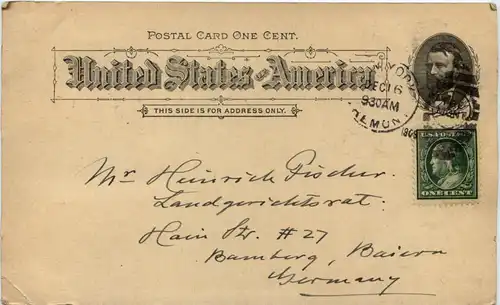 POSTAL CARD ONE CENT.
United States of America.
THIS SIDE IS FOR ADDRESS ONLY.
YORK
DEC 16
930AM
1908
U.S. POSTAGE
ONE CENT
Mr Heinrich Fischer.
Landgerichtsrat.
Hain Str. #27
Bamberg, Baiern
Germany